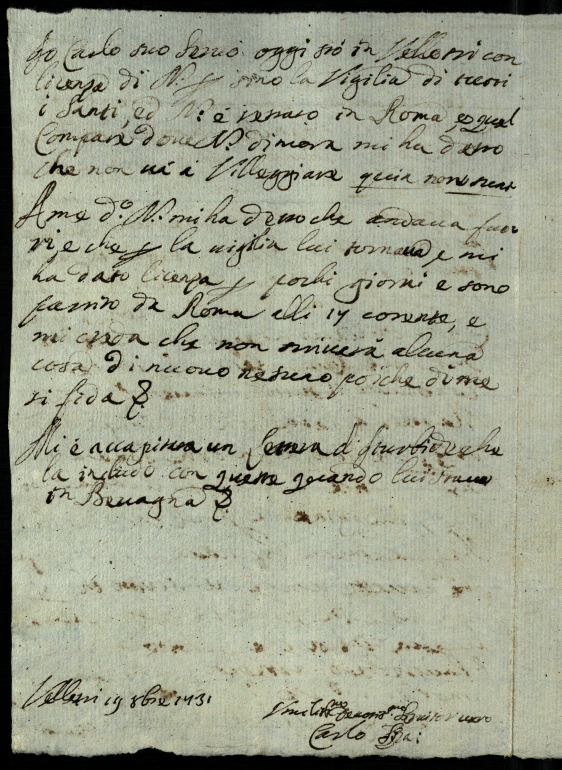 Io Carlo suo Servo oggi stò in Velletri con
licenza di N: p sino la Vigilia di tutti
i Santi, ed N: è restato in Roma, e quel
Compare dove N: dimora mi ha detto
che non và a Villeggiare quia non
A me d.o N: mi ha detto che andava fuo
ri, e che p la vigilia lui tornava, e mi
ha dato licenza p pochi giorni e sono
partito da Roma alli 17 corrente, e
mi creda che non scriverà alcuna
cosa di nuovo nessuno poiche di me
si fida &.
Mi è accapitata un lettera di che
la includo con queste quando lui stava
in Bevagna &.
Velletri 19 8bre 1731
Servitor vero
Carlo